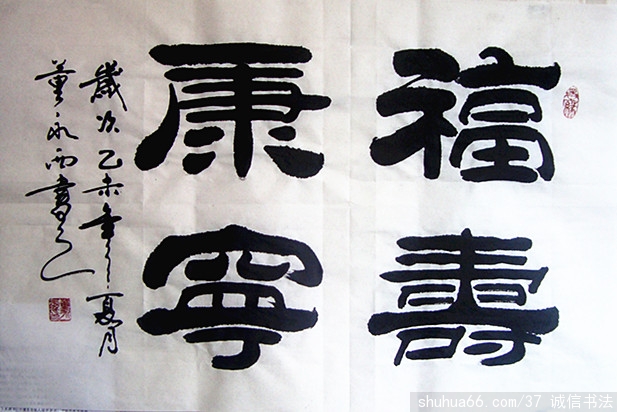 福壽
康寧
歲次乙未年夏月
董永西書
shuhua66.com/37 诚信书法